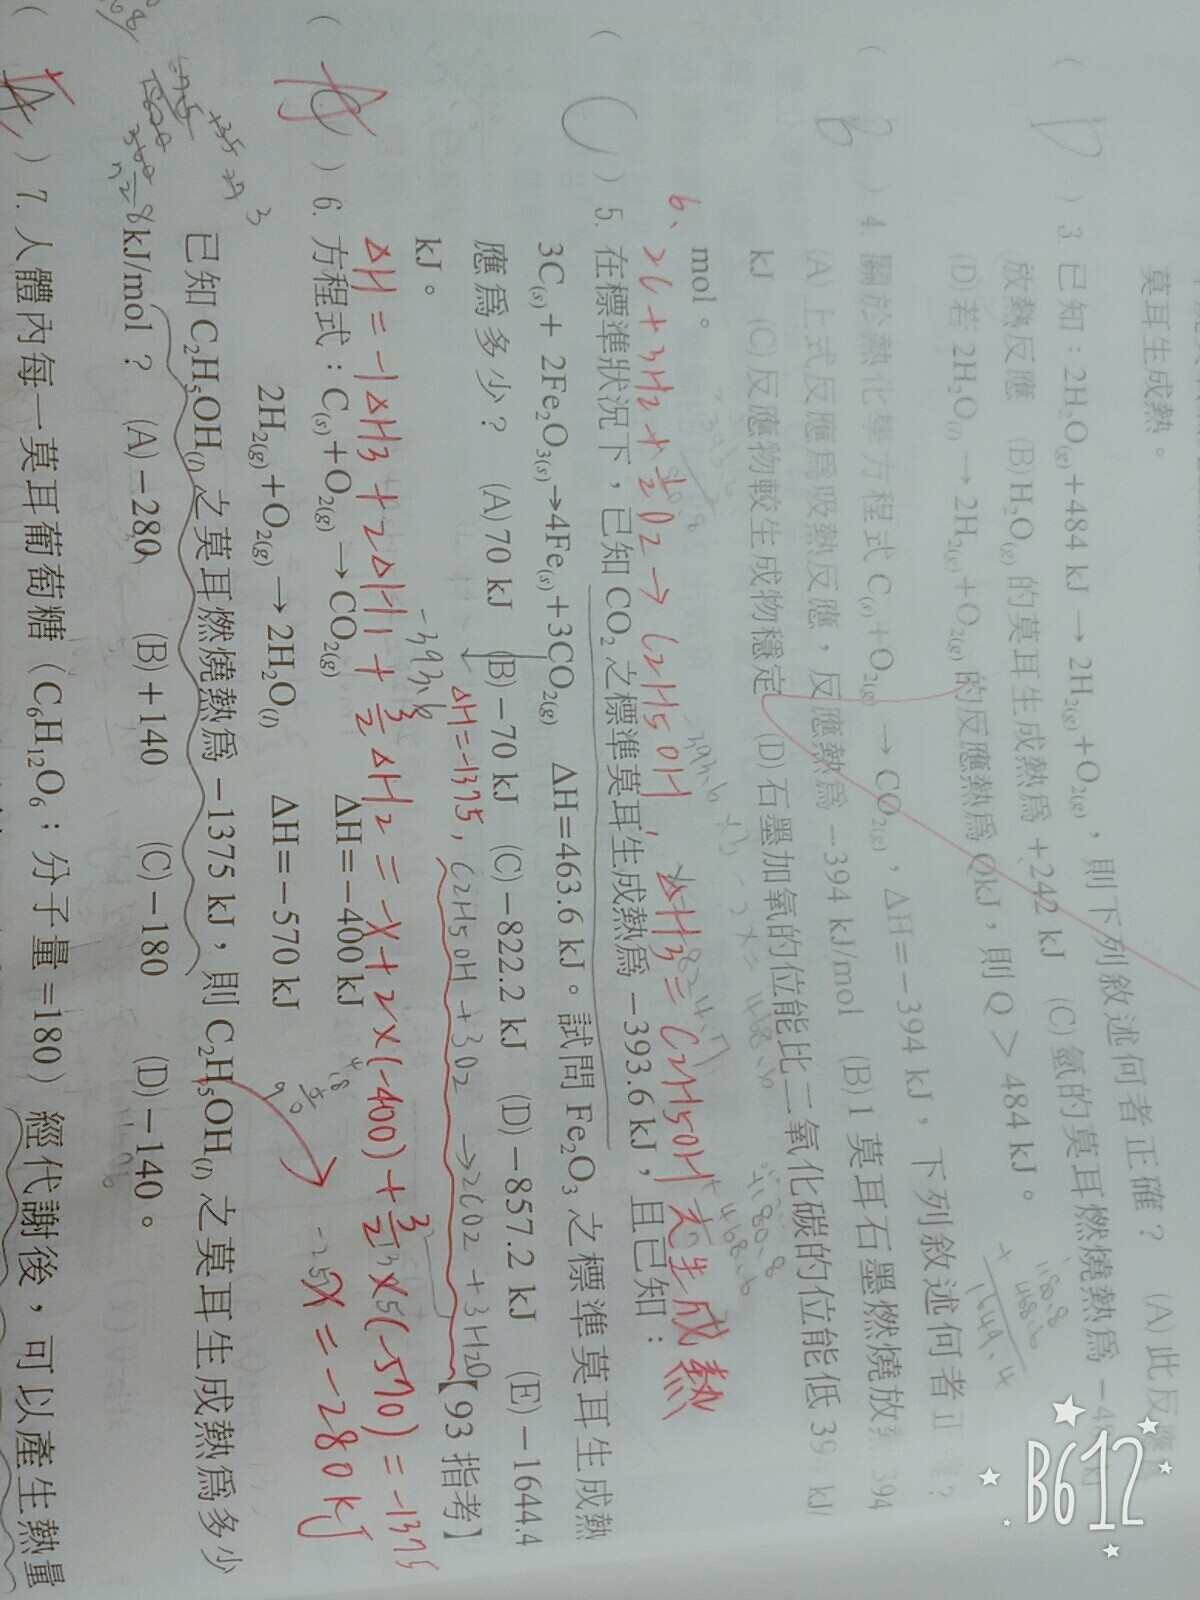 莫耳生成熱。
D ) 3. 已知：2H₂O(g)+484 kJ → 2H₂(g)+O₂(g)，則下列敘述何者正確？ (A)此反應
放熱反應 (B)H₂O(g) 的莫耳生成熱為 +242 kJ (C)氫的莫耳燃燒熱為 −48 kJ
(D)若 2H₂O(l) → 2H₂(g)+O₂(g)的反應熱為 QkJ，則 Q > 484 kJ。
B ) 4. 關於熱化學方程式 C(s)+O₂(g) → CO₂(g)，ΔH=−394 kJ，下列敘述何者正 ？
(A)上式反應為吸熱反應，反應熱為 −394 kJ/mol (B)1 莫耳石墨燃燒放 394
kJ (C)反應物較生成物穩定 (D)石墨加氧的位能比二氧化碳的位能低 39 kJ/
mol。
6、2C+3H₂+½O₂→C₂H₅OH， ΔH₃=C₂H₅OH之生成熱
( C ) 5. 在標準狀況下，已知 CO₂ 之標準莫耳生成熱為 −393.6 kJ，且已知：
3C(s)+ 2Fe₂O₃(s)→4Fe(s)+3CO₂(g) ΔH=463.6 kJ。試問 Fe₂O₃ 之標準莫耳生成熱
應為多少？ (A)70 kJ (B)−70 kJ (C)−822.2 kJ (D)−857.2 kJ (E)−1644.4
kJ。 【93 指考】
−393.6
ΔH=−1375，C₂H₅OH+3O₂→2CO₂+3H₂O
ΔH=−1ΔH₃+2ΔH₁+3/2ΔH₂=−X+2×(−400)+3/2×(−570)=−1375
( A ) 6. 方程式：C(s)+O₂(g) → CO₂(g) ΔH=−400 kJ
2H₂(g)+O₂(g) → 2H₂O(l) ΔH=−570 kJ
X=−280kJ
已知 C₂H₅OH(l) 之莫耳燃燒熱為 −1375 kJ，則 C₂H₅OH(l) 之莫耳生成熱為多少
kJ/mol？ (A)−280 (B)+140 (C)−180 (D)−140。
( A ) 7. 人體內每一莫耳葡萄糖（C₆H₁₂O₆；分子量=180）經代謝後，可以產生熱量
B612